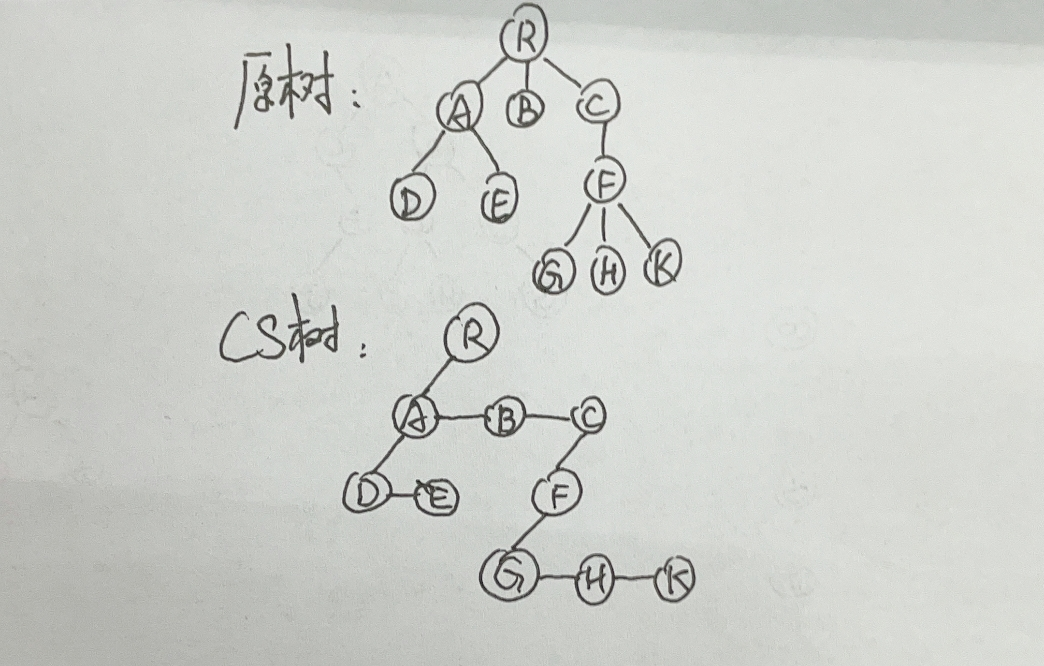 R
原树:
A B C
D E F
G H K
CS树:
R
A B C
D E F
G H K